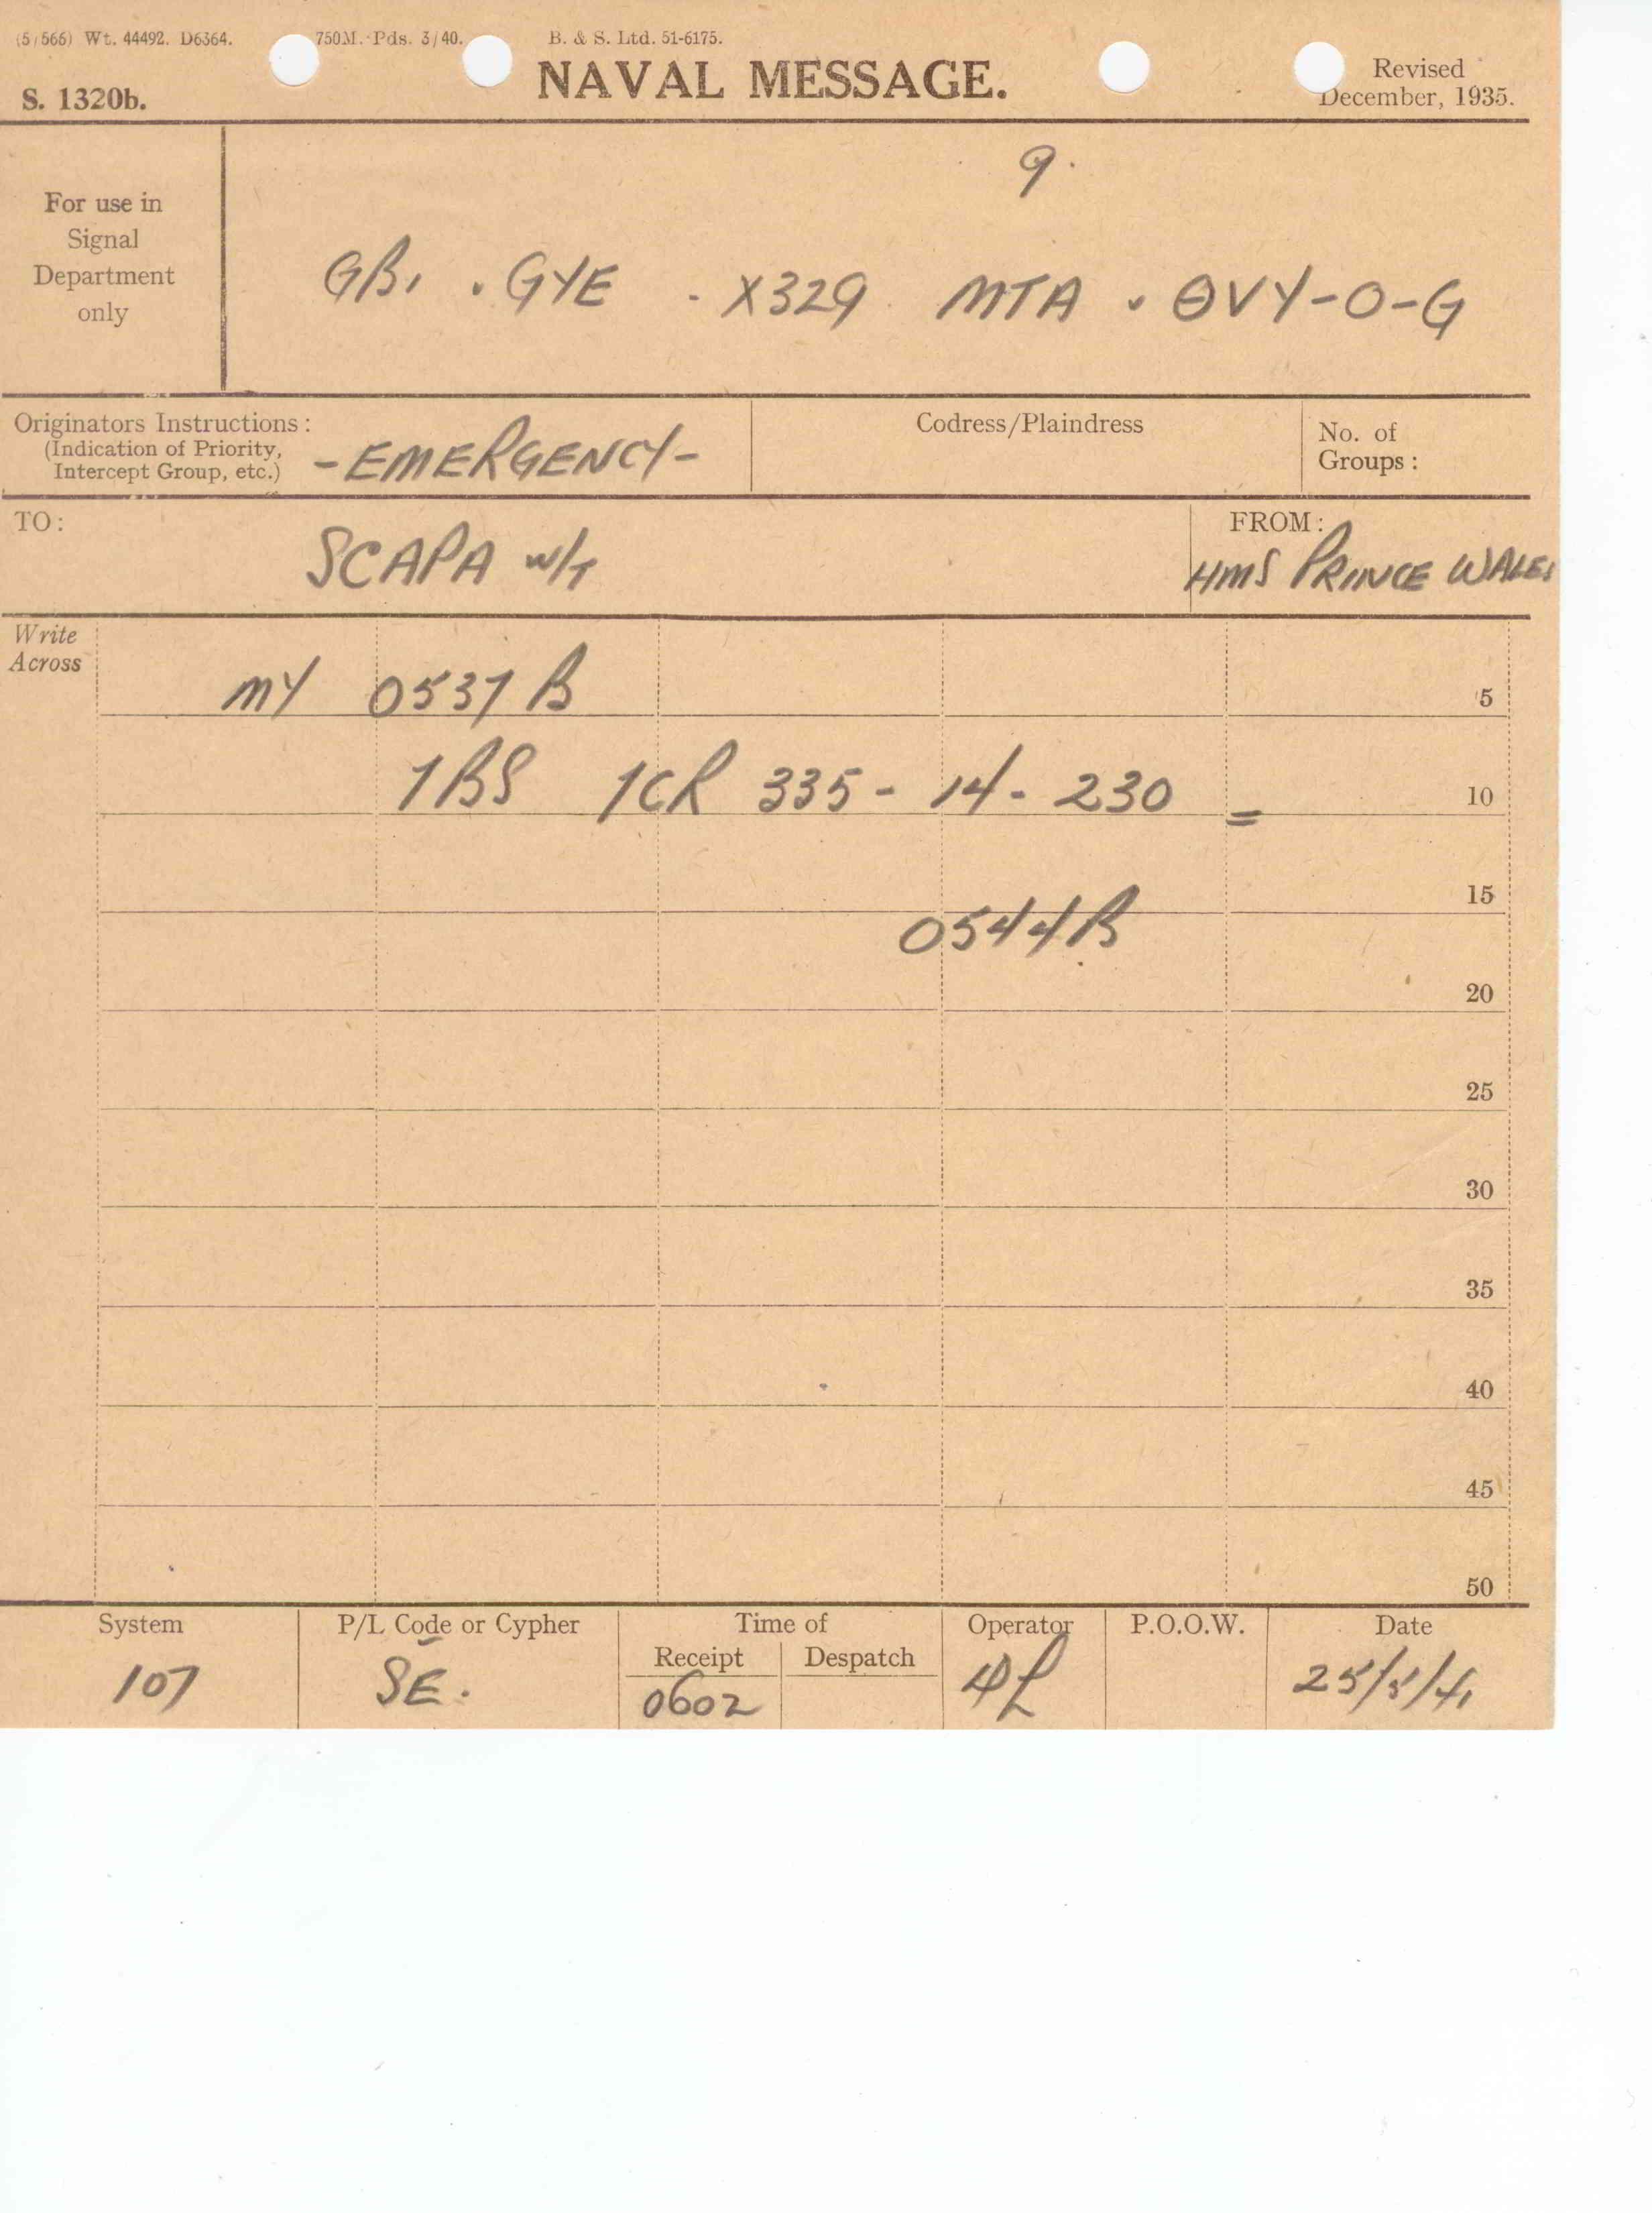 (5/566) Wt. 44492. D6364. 750M. Pds. 3/40. B. & S. Ltd. 51-6175.
S. 1320b.
NAVAL MESSAGE.
Revised
December, 1935.
9.
For use in
Signal
Department
only
GB1 . GYE . X329 MTA . ØVY-O-G
Originators Instructions:
(Indication of Priority,
Intercept Group, etc.)
-EMERGENCY-
Codress/Plaindress
No. of
Groups:
TO:
SCAPA W/T
FROM:
HMS PRINCE WALES
Write
Across
MY 0537 B
5
1BS 1CR 335 - 14 - 230 =
10
15
0544B
20
25
30
35
40
45
50
System
P/L Code or Cypher
Time of
Receipt
Despatch
Operator
P.O.O.W.
Date
107
SE.
0602
25/5/41